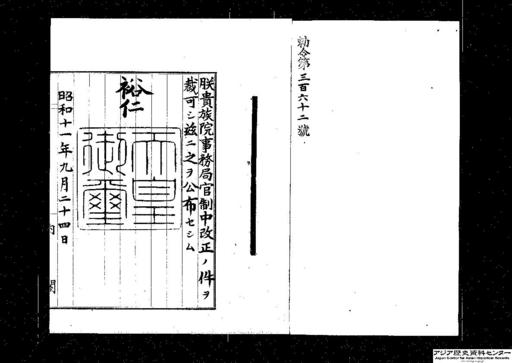 勅令第三百六十二號
朕貴族院事務局官制中改正ノ件ヲ
裁可シ玆ニ之ヲ公布セシム
裕仁
天皇
御璽
昭和十一年九月二十四日
内閣
アジア歴史資料センター
Japan Center for Asian Historical Records